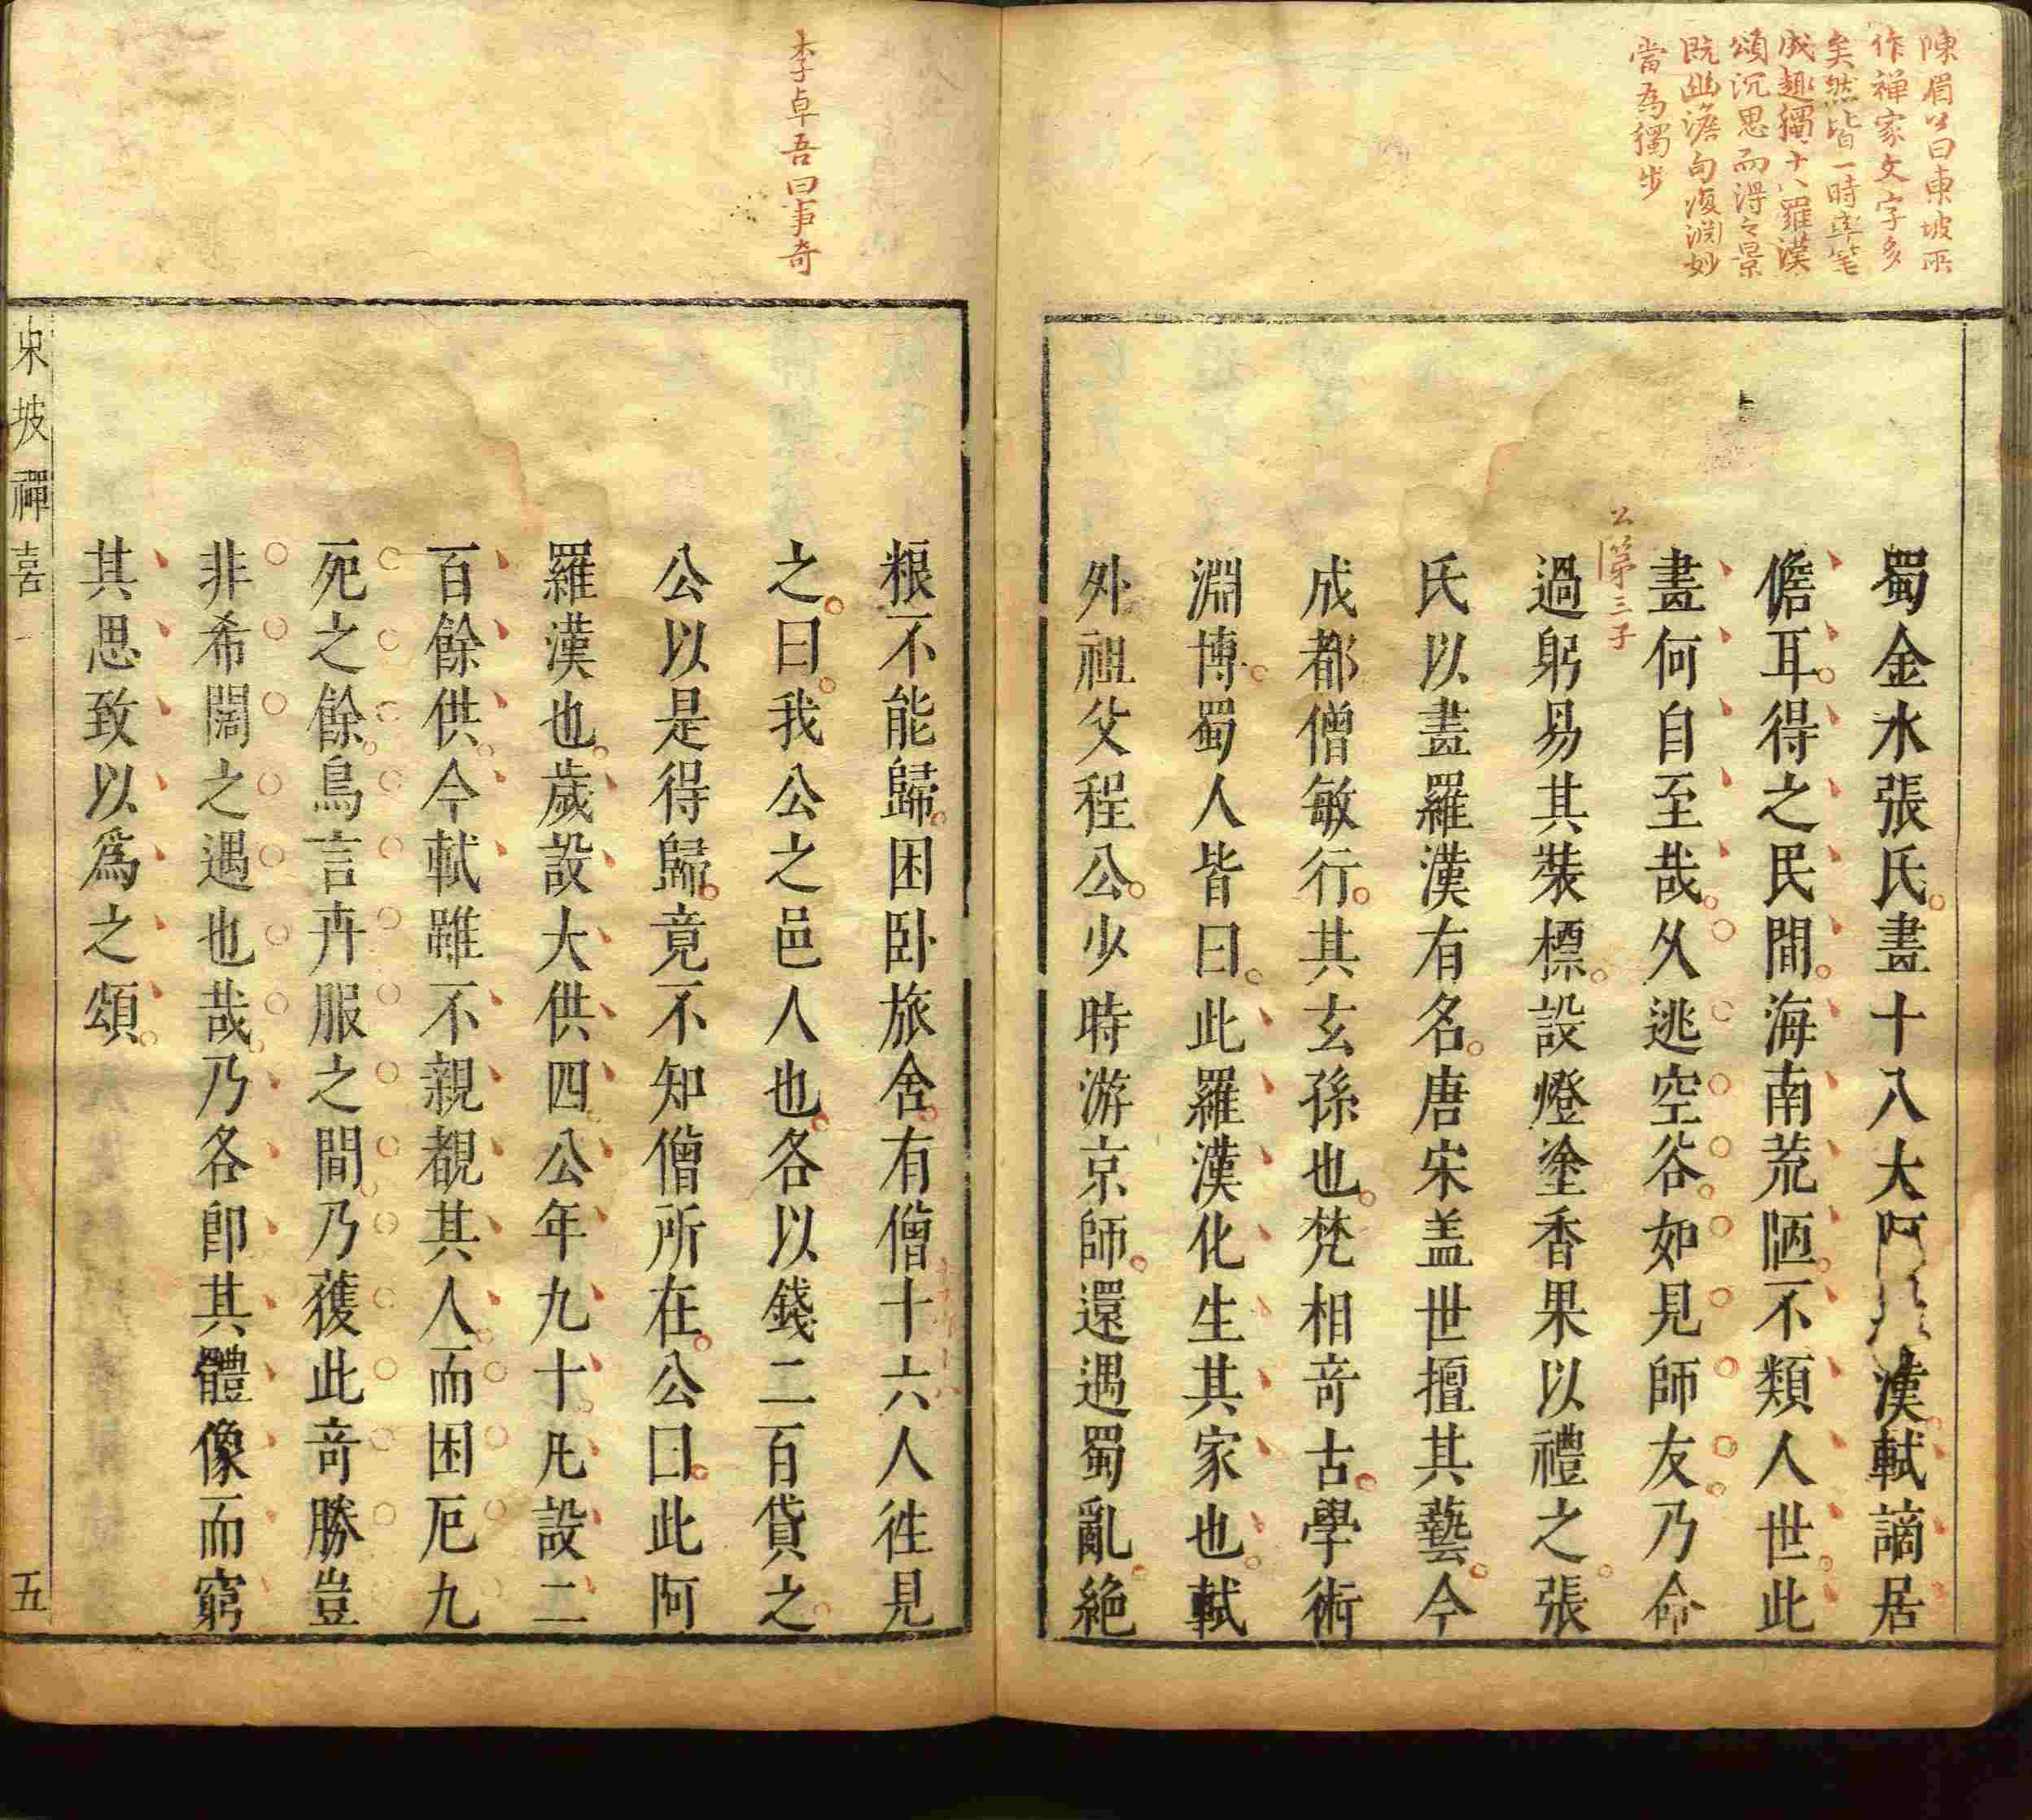 陳眉公曰東坡所
作禅家文字多
矣然皆一時率笔
成趣獨十八羅漢
頌沉思而得之景
既幽澹句復淵妙
當為獨步
蜀金水張氏畫十八大阿羅漢軾謫居
儋耳得之民間海南荒陋不類人世此
畫何自至哉久逃空谷如見師友乃命
公第三子
過躬易其裝標設燈塗香果以禮之張
氏以畫羅漢有名唐宋盖世擅其藝今
成都僧敏行其玄孫也梵相奇古學術
淵博蜀人皆曰此羅漢化生其家也軾
外祖父程公少時游京師還遇蜀亂絕
李卓吾曰事奇
粮不能歸困卧旅舍有僧十六人徃見
之曰我公之邑人也各以錢二百貸之
公以是得歸竟不知僧所在公曰此阿
羅漢也歲設大供四公年九十凡設二
百餘供今軾雖不親覩其人而困厄九
死之餘鳥言卉服之間乃獲此奇勝豈
非希闊之遇也哉乃各即其體像而窮
其思致以爲之頌
東坡禪喜
一
五